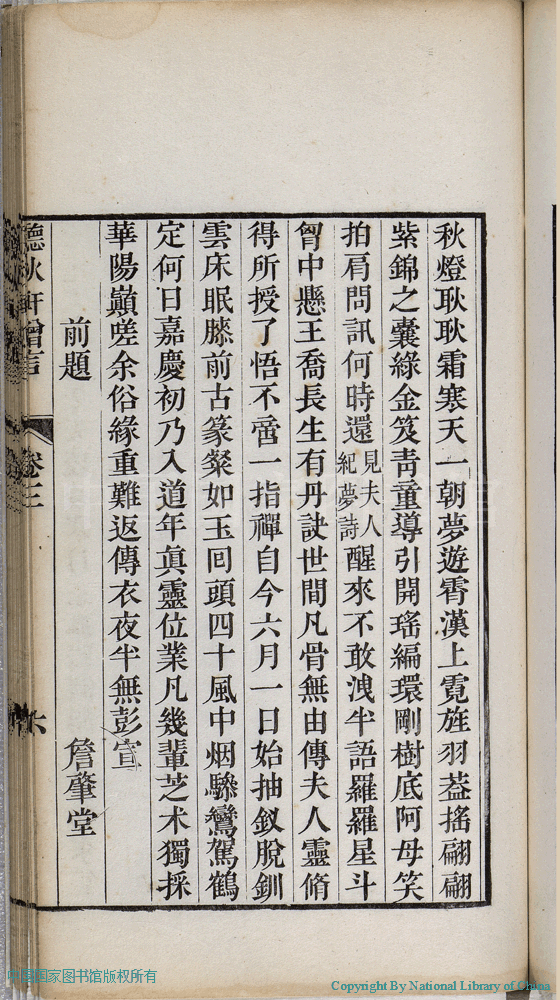 秋燈耿耿霜寒天一朝夢遊霄漢上霓旌羽葢搖翩翩
紫錦之囊綠金笈青童導引開瑤編環剛樹底阿母笑
拍肩問訊何時還見夫人紀夢詩醒來不敢洩半語羅羅星斗
胷中懸王喬長生有丹訣世間凡骨無由傳夫人靈脩
得所授了悟不啻一指禪自今六月一日始抽釵脫釧
雲床眠膝前古篆粲如玉回頭四十風中烟驂鸞駕鶴
定何日嘉慶初乃入道年眞靈位業凡幾輩芝术獨採
華陽巔嗟余俗緣重難返傳衣夜半無彭宣
前題
詹肇堂
聽秋軒贈言
卷三
六
中國國家图书馆版权所有
Copyright By National Library of China